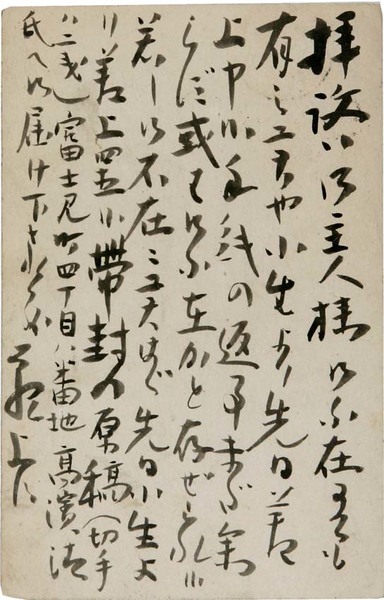 拝啓御主人様御不在にも
有之候や小生より先日差
上申候手紙の返事未だ参
らず或は御不在かと存ぜられ候
若し御不在ニ候はゞ先日小生よ
り差上置候帯封の原稿(切手
ハ二銭)富士見町四丁目八番地高濱清
氏へ御届け下され度候